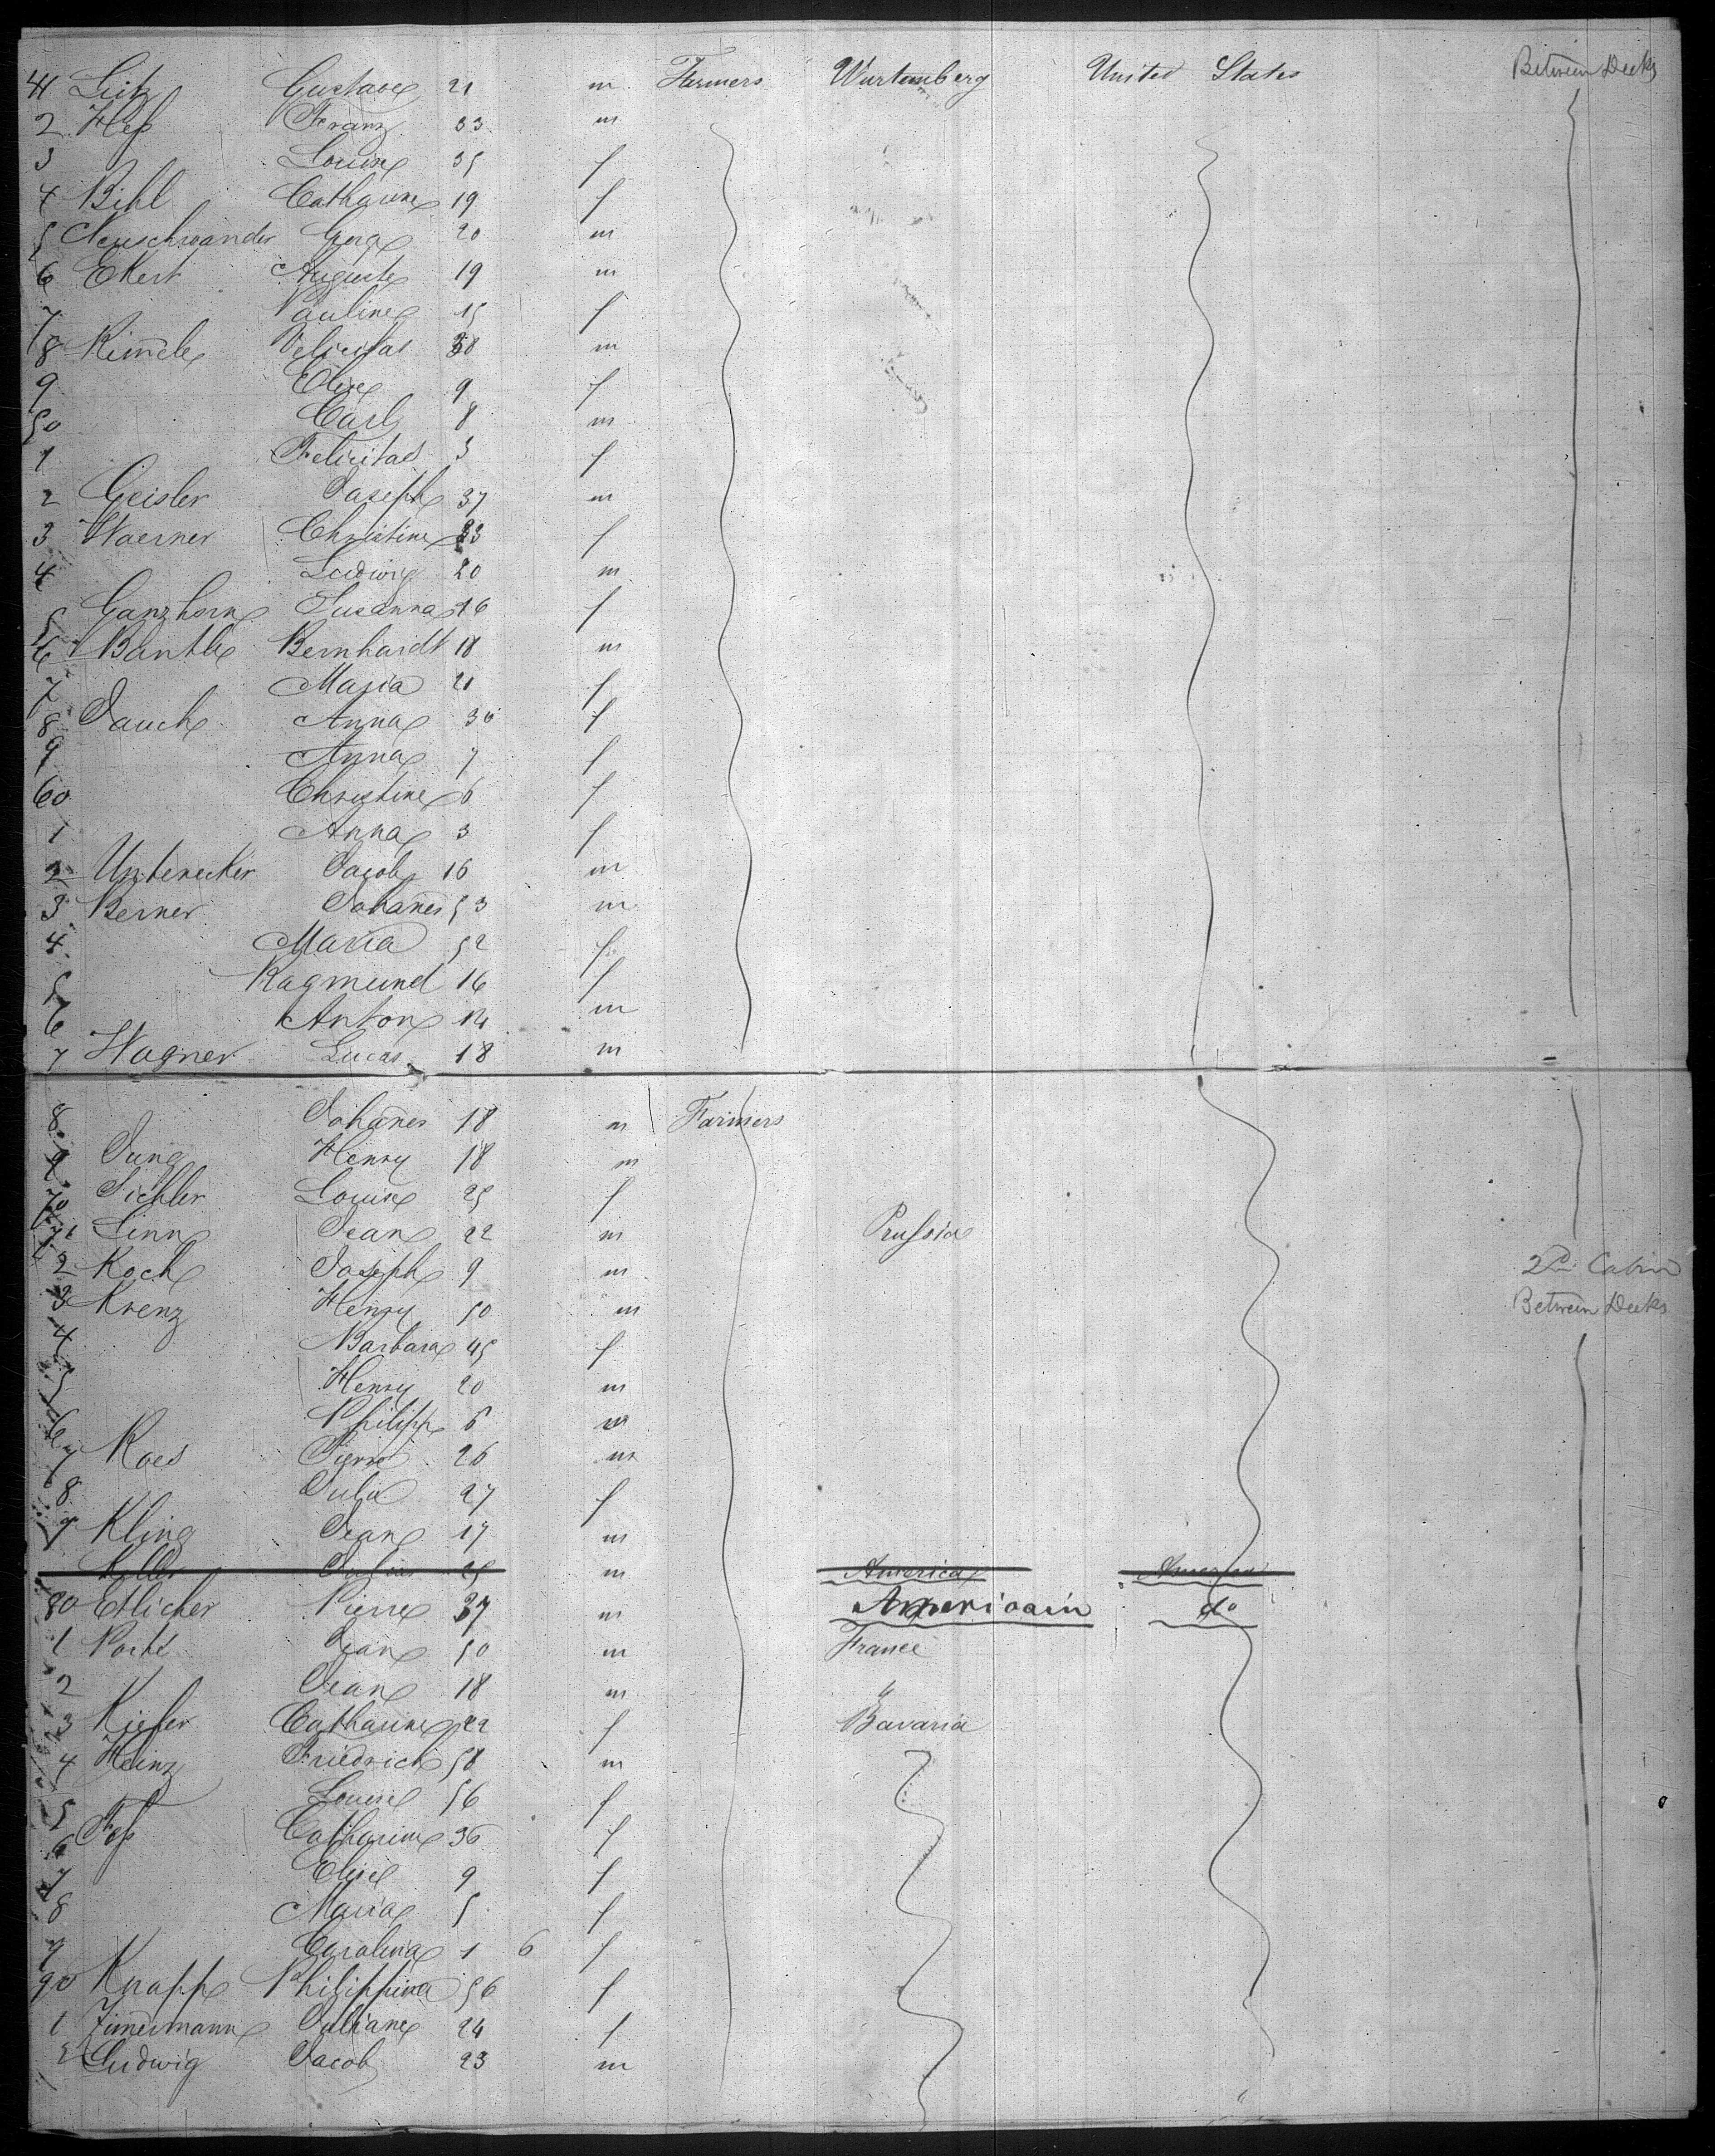 41 Seitz Gustave 21 m Farmers Wurtemberg United States Between Decks
2 Hess Franz 33 m
3 Louise 35 f
4 Bihl Catharine 19 f
5 Neuschwander Georg 20 m
6 Ekert Auguste 19 m
7 Pauline 15 f
8 Kim̄ele Velicitas 38 m
9 Elise 9 f
50 Carl 8 m
1 Felicitas 3 f
2 Geisler Joseph 37 m
3 Woerner Christine 23 f
4 Ludwig 20 m
5 Ganzhorn Susanna 16 f
6 Bantle Bernhardt 18 m
7 Maria 21 f
8 Jauch Anna 30 f
9 Anna 7 f
60 Christine 6 f
1 Anna 3 f
2 Unterecker Jacob 16 m
3 Berner Johan̄es 53 m
4 Maria 52 f
5 Ragmund 16 f
6 Anton 14 m
7 Wagner Lucas 18 m
8 Johan̄es 18 m Farmers
9 Jung Henry 18 m
70 Sichler Louise 25 f
71 Linn Jean 22 m Prussia
2 Koch Joseph 9 m 2d Cabin
3 Krenz Henry 50 m Between Decks
4 Barbara 45 f
5 Henry 20 m
6 Philipp 6 m
7 Roes Pierre 26 m
8 Julie 27 f
9 Kling Jean 17 m
Keller Julius 25 m America America
80 Etlicher Pierre 37 m Americain do
1 Porte Jean 50 m France
2 Jean 18 m "
3 Kiefer Catharine 22 f Bavaria
4 Heinz Friedrich 58 m
5 Louise 56 f
6 Fess Catharine 36 f
7 Elise 9 f
8 Maria 5 f
9 Carolina 1 6 f
90 Knapp Philippina 56 f
1 Zim̄ermann Juliane 24 f
2 Ludwig Jacob 23 m